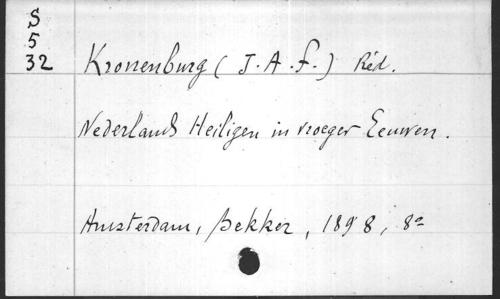 S
5
32
Kronenburg (J.A.F.) Réd.
Nederlands Heiligen in vroeger Eeuwen.
Amsterdam, Bekker, 1898, 8º